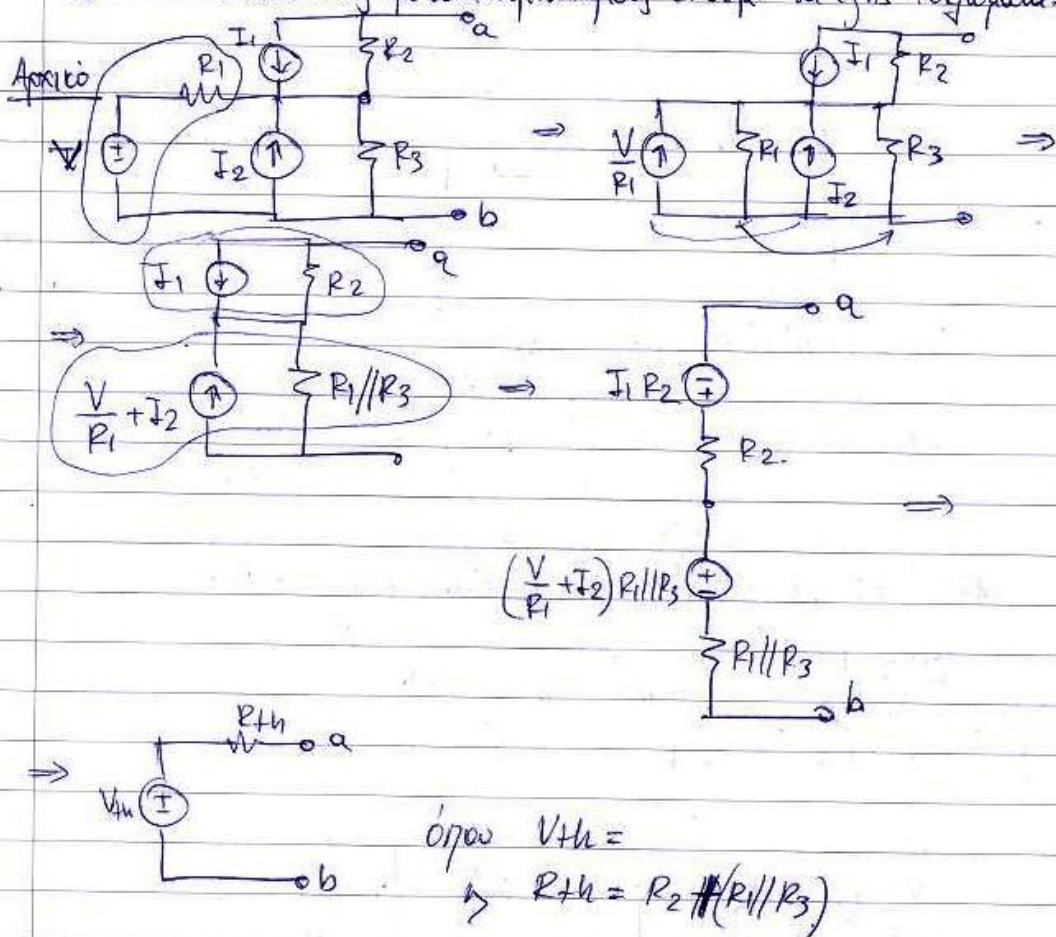 I1
R2
a
Αρχικό
R1
V
±
I2
R3
b
⇒
I1
R2
V/R1
R1
I2
R3
⇒
I1
R2
a
⇒
V/R1 + I2
R1//R3
⇒
a
I1 R2
R2.
(V/R1 + I2) R1//R3
R1//R3
b
⇒
⇒
Rth
a
Vth
±
b
όπου Vth =
Rth = R2 + (R1//R3)